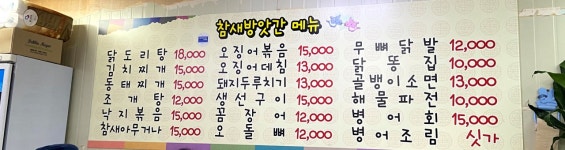 참새방앗간 메뉴
닭도리탕 18,000
김치찌개 15,000
동태찌개 15,000
조개탕 12,000
낙지볶음 15,000
참새아무거나 15,000
오징어볶음 15,000
오징어데침 13,000
돼지두루치기 13,000
생선구이 15,000
꼼장어 12,000
오돌뼈 12,000
무뼈닭발 12,000
닭똥집 10,000
골뱅이소면 13,000
해물파전 10,000
병어회 15,000
병어조림 싯가